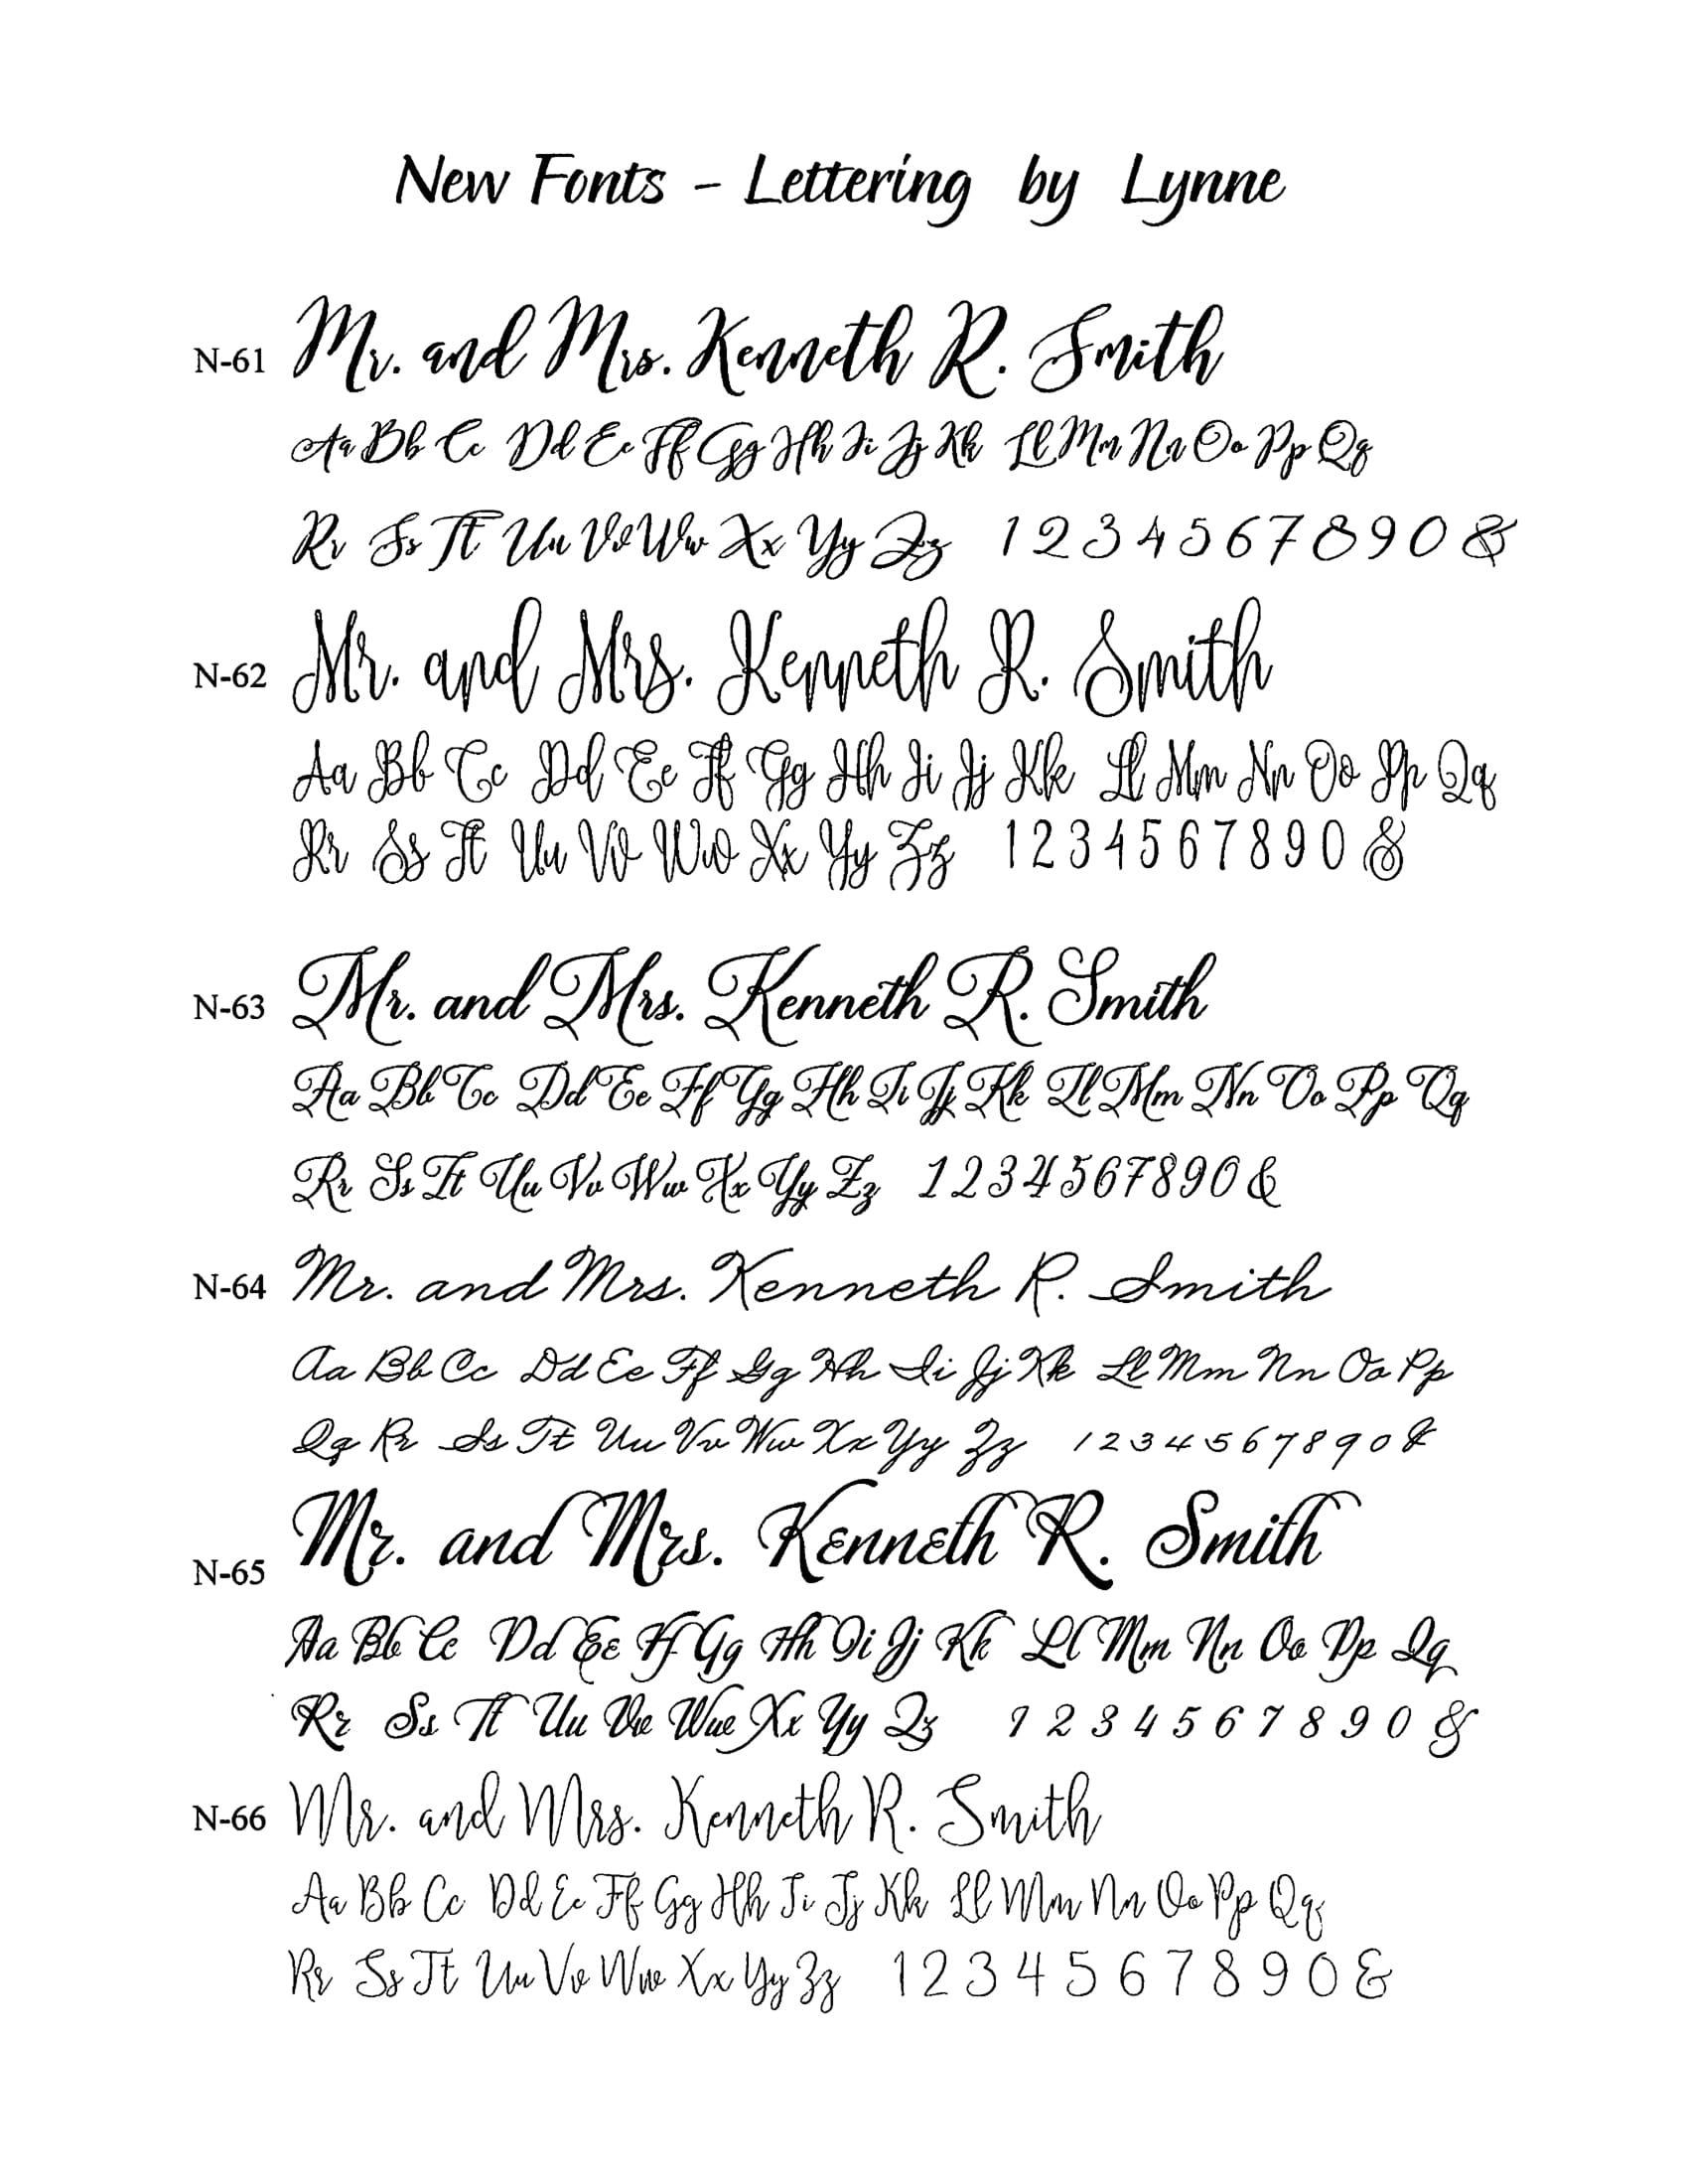 New Fonts - Lettering by Lynne
N-61 Mr. and Mrs. Kenneth R. Smith
Aa Bb Cc Dd Ee Ff Gg Hh Ii Jj Kk Ll Mm Nn Oo Pp Qq
Rr Ss Tt Uu Vv Ww Xx Yy Zz 1 2 3 4 5 6 7 8 9 0 &
N-62 Mr. and Mrs. Kenneth R. Smith
Aa Bb Cc Dd Ee Ff Gg Hh Ii Jj Kk Ll Mm Nn Oo Pp Qq
Rr Ss Tt Uu Vv Ww Xx Yy Zz 1 2 3 4 5 6 7 8 9 0 &
N-63 Mr. and Mrs. Kenneth R. Smith
Aa Bb Cc Dd Ee Ff Gg Hh Ii Jj Kk Ll Mm Nn Oo Pp Qq
Rr Ss Tt Uu Vv Ww Xx Yy Zz 1 2 3 4 5 6 7 8 9 0 &
N-64 Mr. and Mrs. Kenneth R. Smith
Aa Bb Cc Dd Ee Ff Gg Hh Ii Jj Kk Ll Mm Nn Oo Pp
Qq Rr Ss Tt Uu Vv Ww Xx Yy Zz 1 2 3 4 5 6 7 8 9 0 &
N-65 Mr. and Mrs. Kenneth R. Smith
Aa Bb Cc Dd Ee Ff Gg Hh Ii Jj Kk Ll Mm Nn Oo Pp Qq
Rr Ss Tt Uu Vv Ww Xx Yy Zz 1 2 3 4 5 6 7 8 9 0 &
N-66 Mr. and Mrs. Kenneth R. Smith
Aa Bb Cc Dd Ee Ff Gg Hh Ii Jj Kk Ll Mm Nn Oo Pp Qq
Rr Ss Tt Uu Vv Ww Xx Yy Zz 1 2 3 4 5 6 7 8 9 0 &